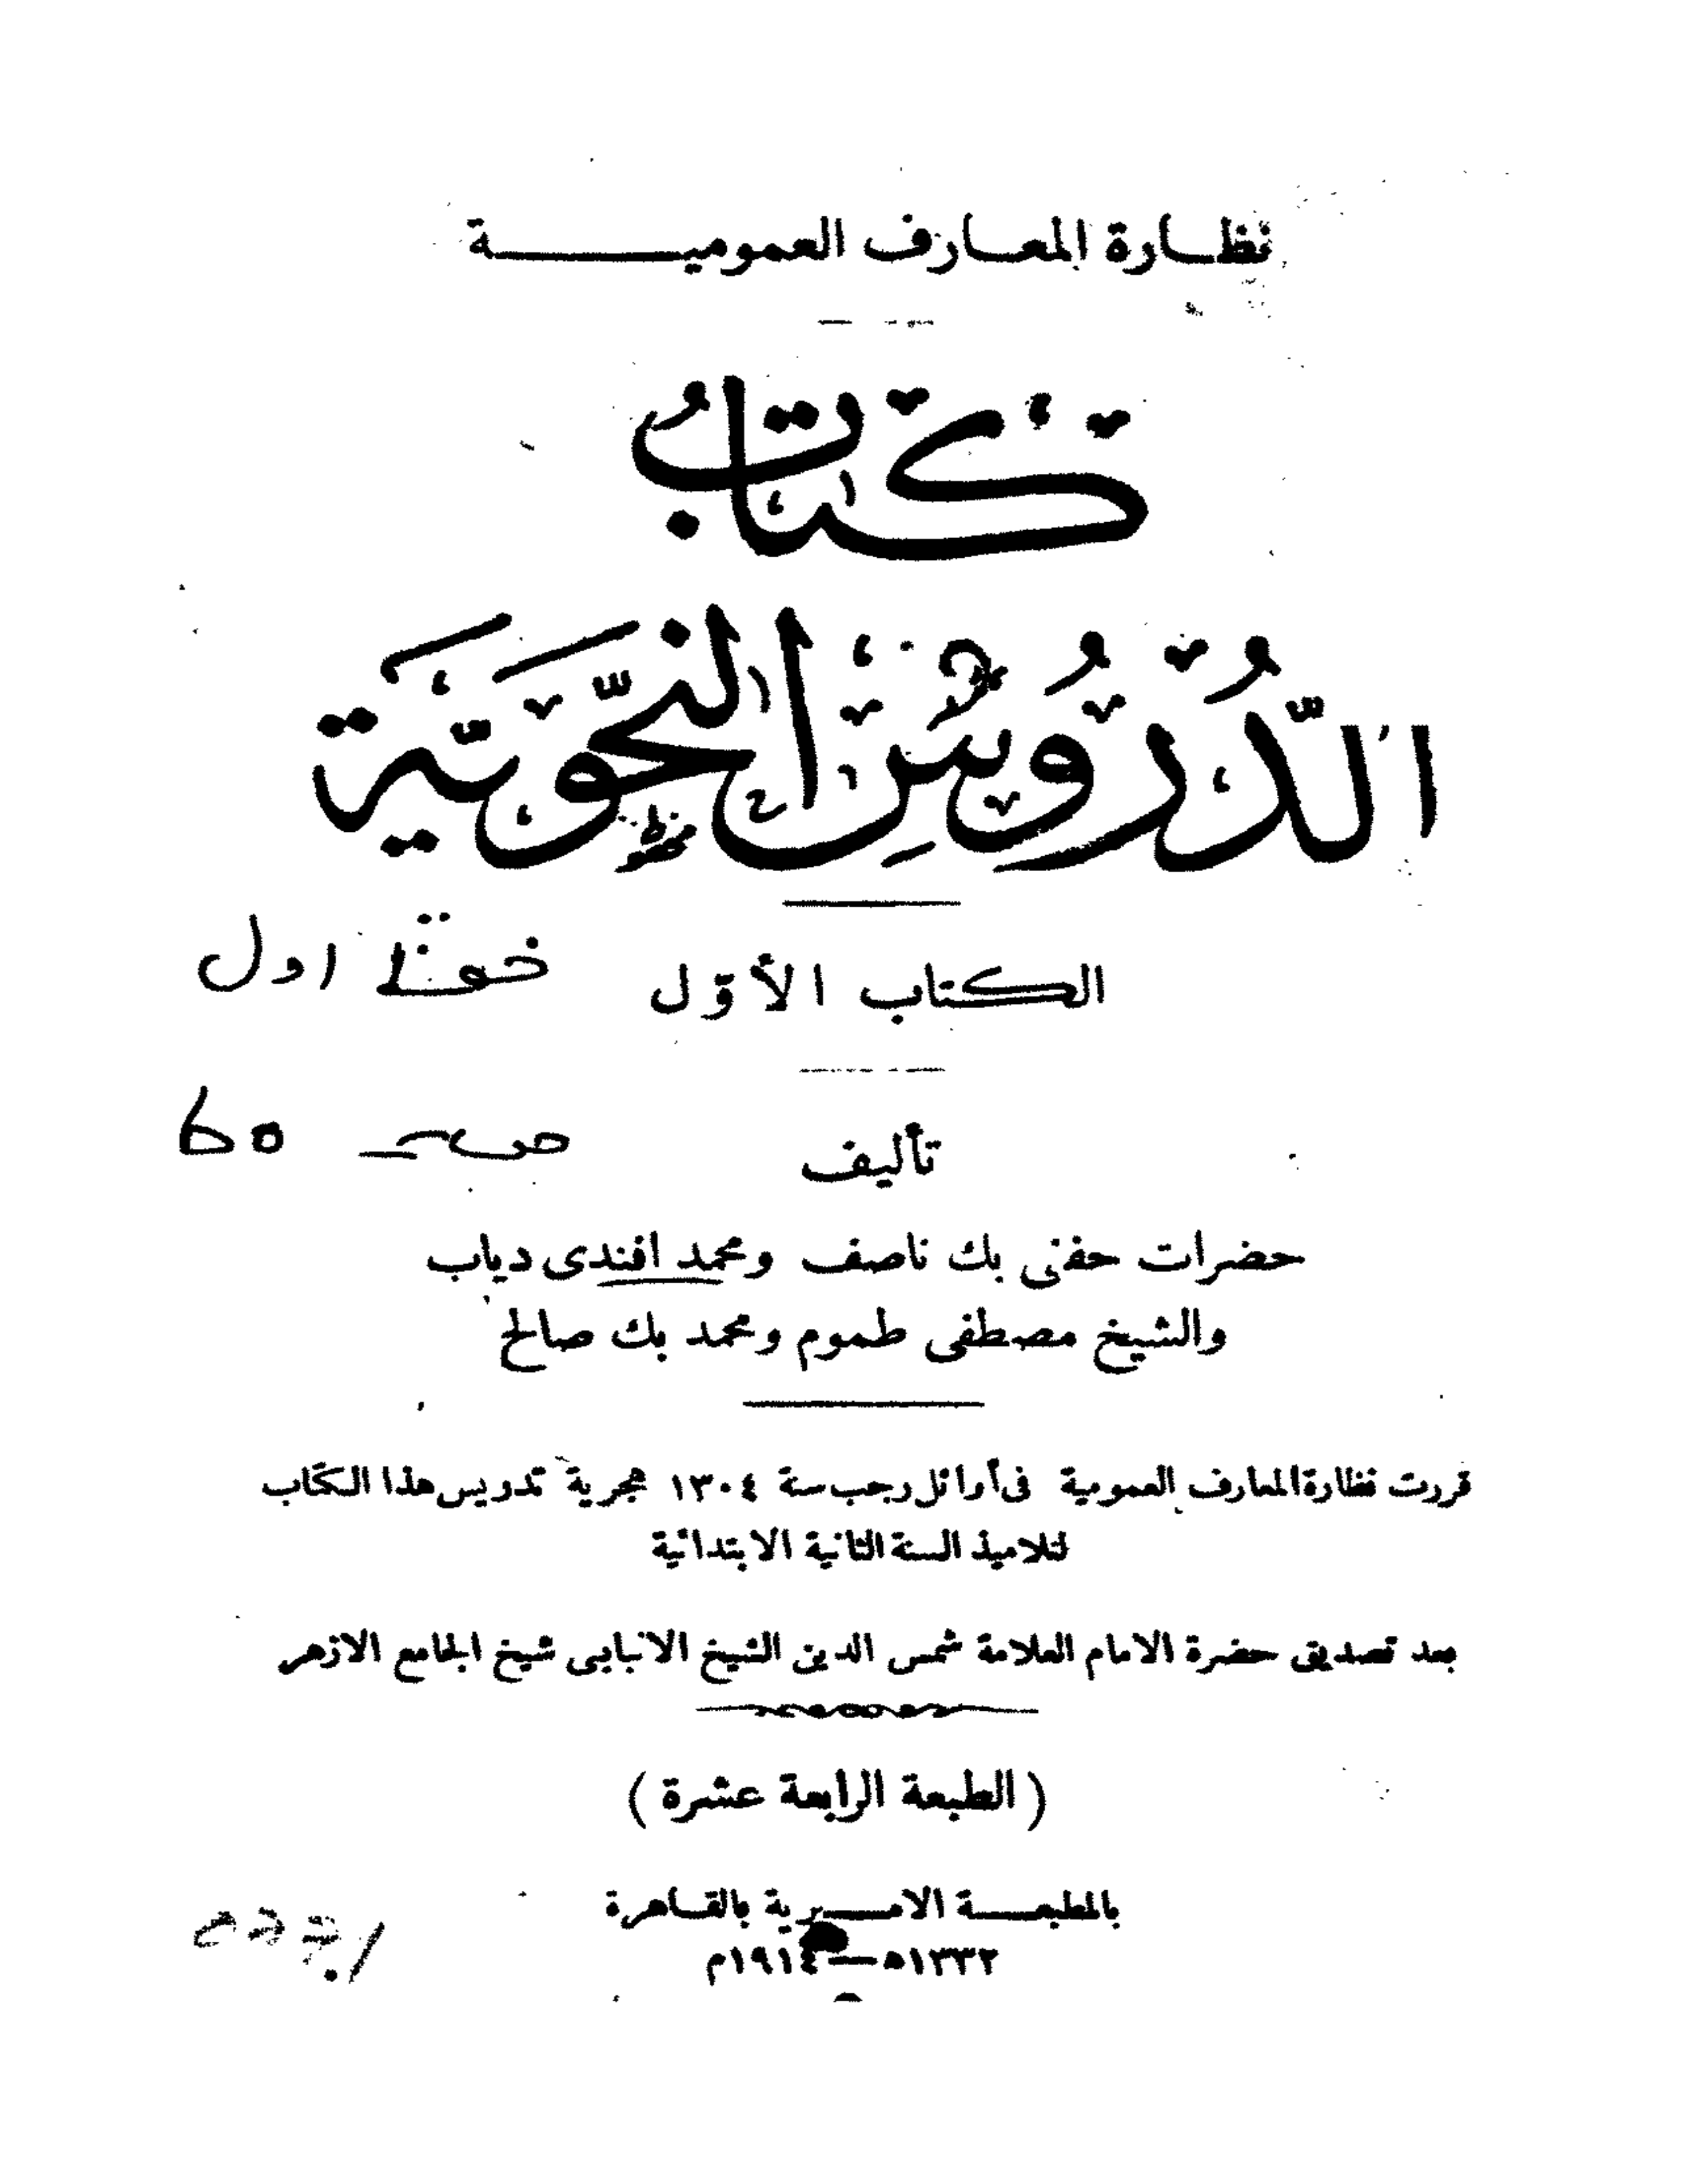 نظارة المعارف العمومية
كتاب
الدُّرُوسُ النَّحْوِيَّة
الكتاب الأوّل
اول
تأليف
حضرات حفنى بك ناصف ومحمد افندى دياب
والشيخ مصطفى طموم ومحمد بك صالح
قررت نظارة المعارف العمومية فى أوائل رجب سنة ١٣٠٤ هجرية تدريس هذا الكتاب
لتلاميذ السنة الثانية الابتدائية
بعد تصديق حضرة الامام العلامة شمس الدين الشيخ الانبابى شيخ الجامع الازهر
(الطبعة الرابعة عشرة)
بالمطبعة الاميرية بالقاهرة
١٣٣٢ه – ١٩١٤م